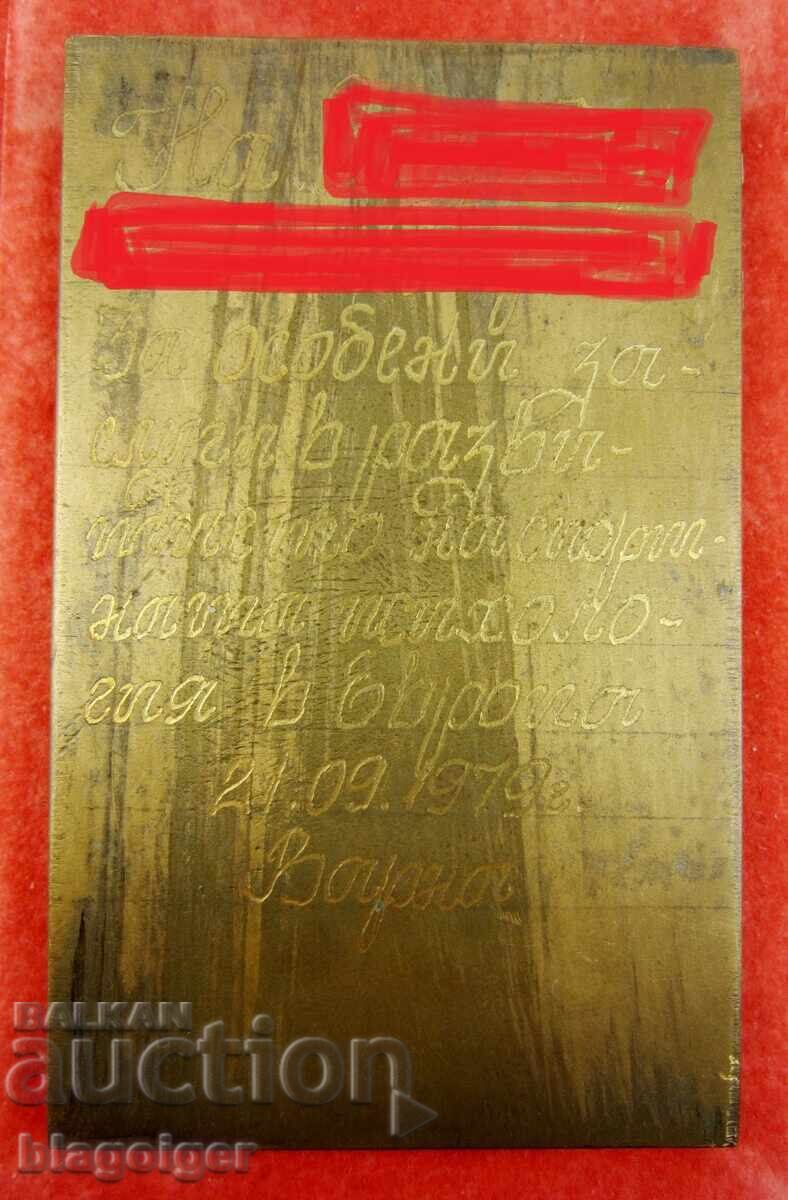 На
За особени за-
слуги в разви-
тието на спорт-
ната психоло-
гия в Европа
21.09.1979г.
Варна
BALKAN
auction
blagoiger